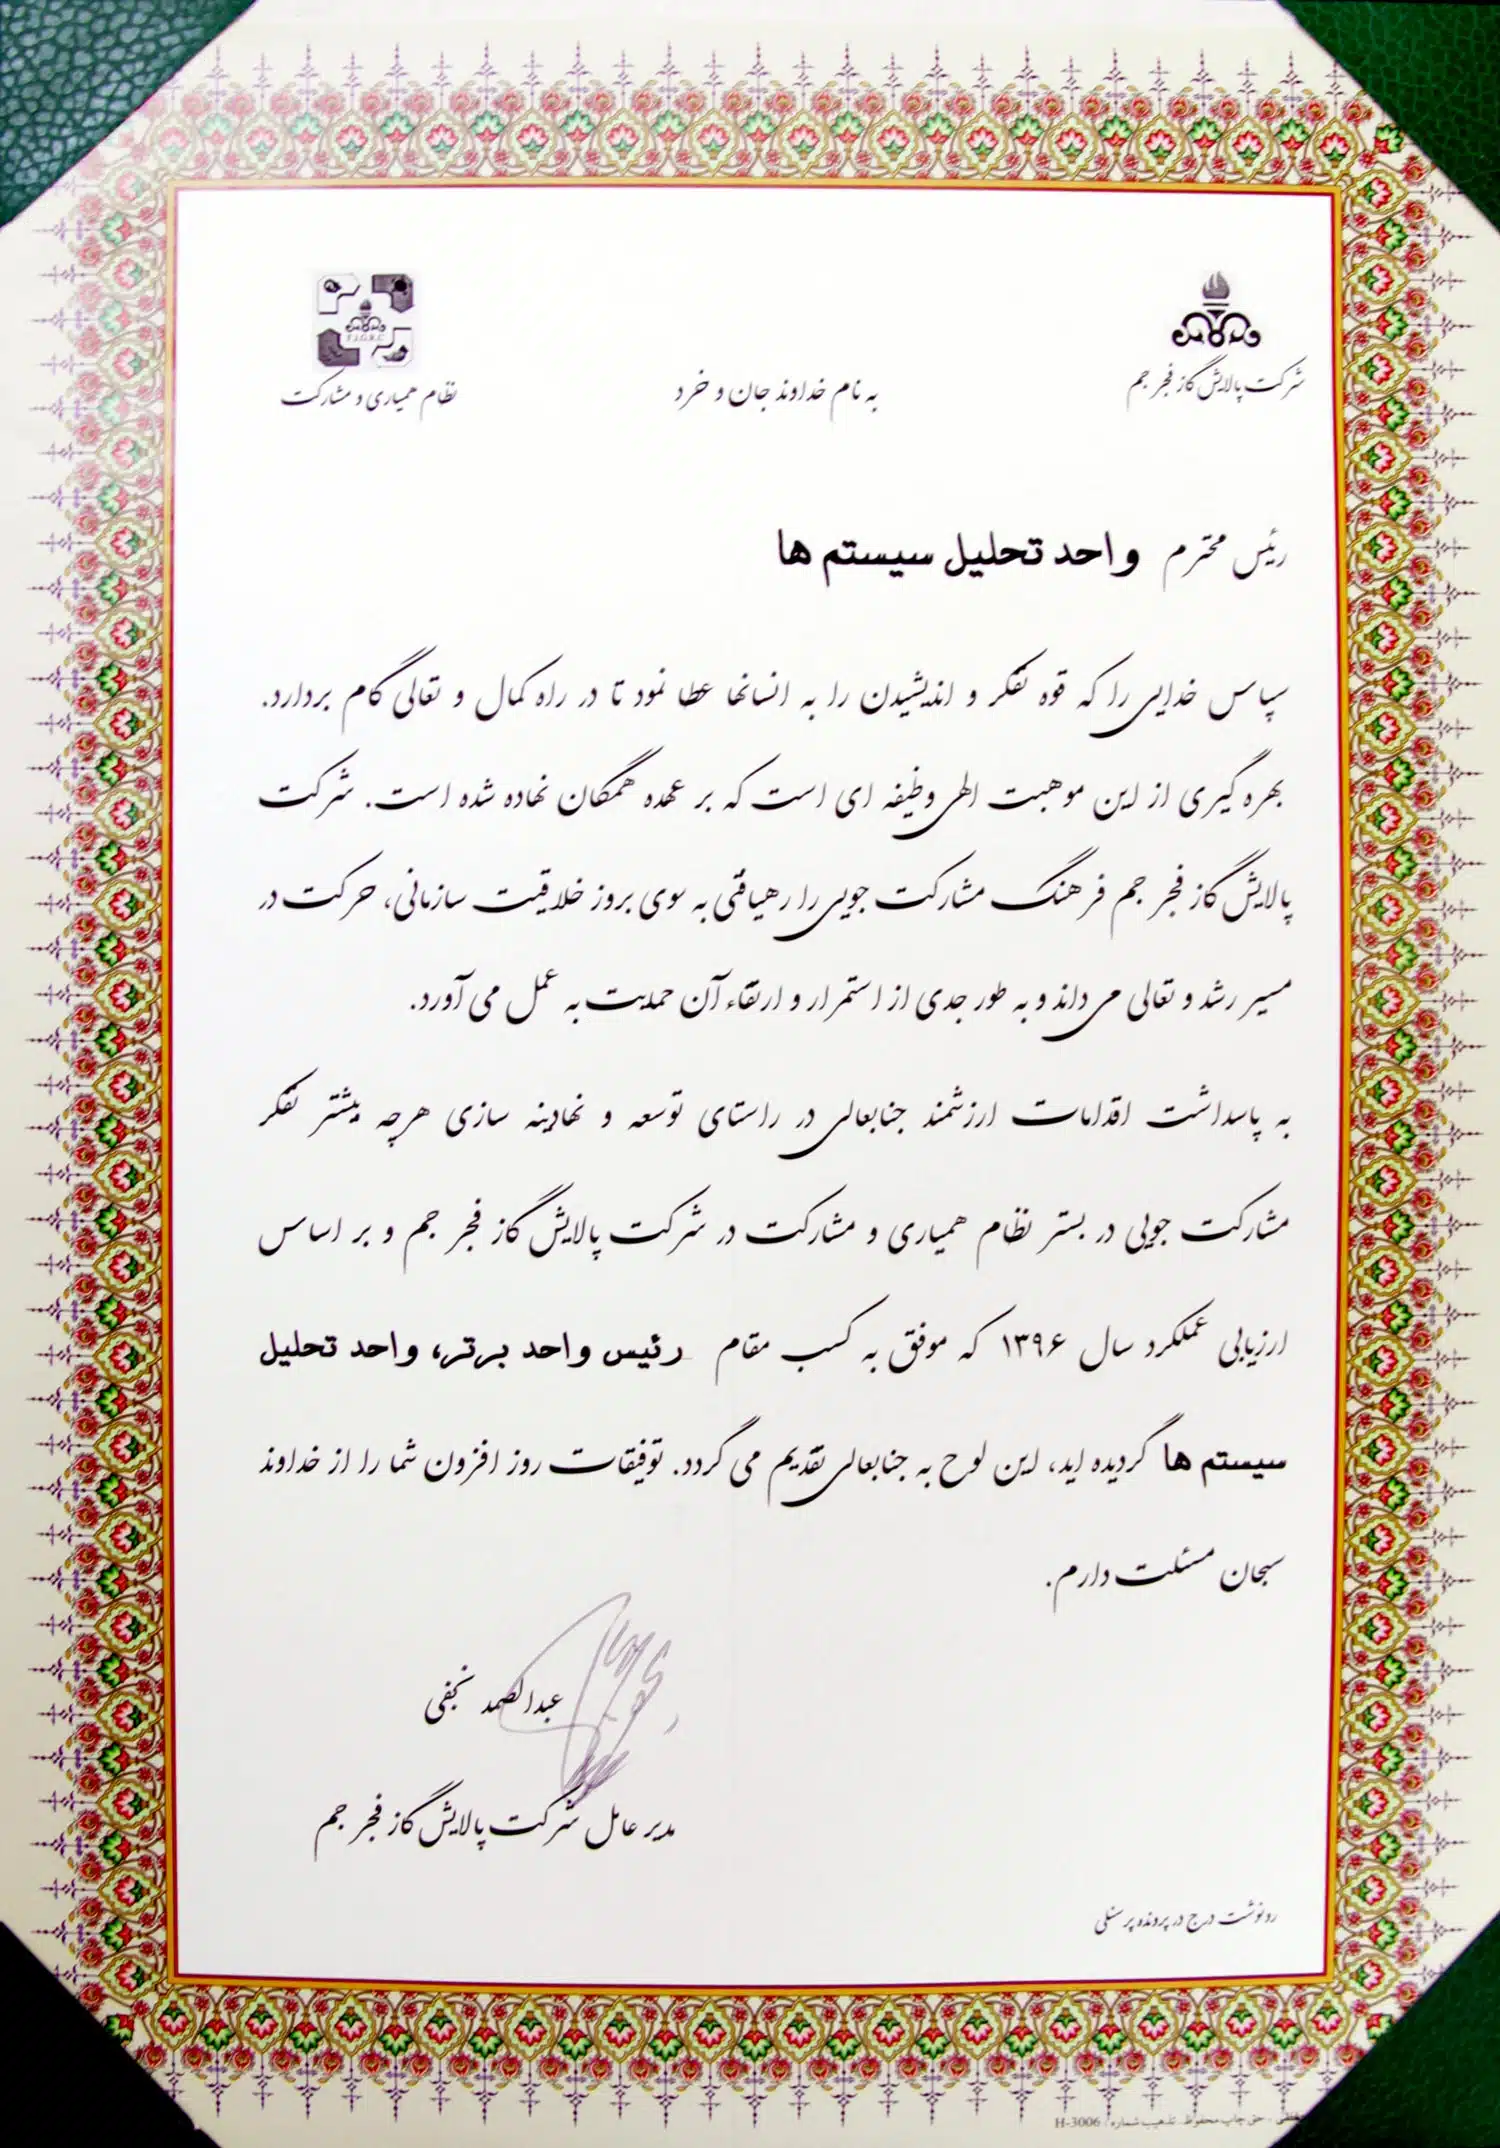 شرکت پالایش گاز فجر جم
به نام خداوند جان و خرد
F.J.G.R.C
نظام همیاری و مشارکت
رئیس محترم واحد تحلیل سیستم ها
سپاس خدایی را که قوه تفکر و اندیشیدن را به انسانها عطا نمود تا در راه کمال و تعالی گام بردارد.
بهره گیری از این موهبت الهی وظیفه ای است که بر عهده همگان نهاده شده است. شرکت
پالایش گاز فجر جم فرهنگ مشارکت جویی را رهیافتی به سوی بروز خلاقیت سازمانی، حرکت در
مسیر رشد و تعالی می داند و به طور جدی از استمرار و ارتقاء آن حمایت به عمل می آورد.
به پاسداشت اقدامات ارزشمند جنابعالی در راستای توسعه و نهادینه سازی هرچه بیشتر تفکر
مشارکت جویی در بستر نظام همیاری و مشارکت در شرکت پالایش گاز فجر جم و بر اساس
ارزیابی عملکرد سال ۱۳۹۶ که موفق به کسب مقام رئیس واحد برتر، واحد تحلیل
سیستم ها گردیده اید، این لوح به جنابعالی تقدیم می گردد. توفیقات روز افزون شما را از خداوند
سبحان مسئلت دارم.
عبدالصمد نجفی
مدیر عامل شرکت پالایش گاز فجر جم
رونوشت درج در پرونده پرسنلی
حق چاپ محفوظ. تذهیب شماره: H-3006